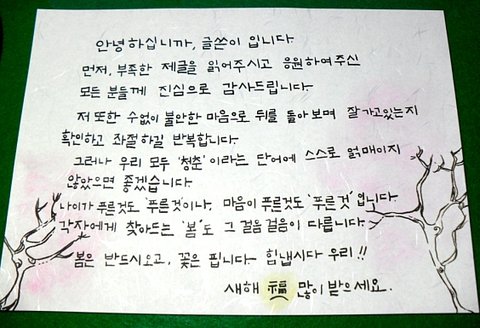 안녕하십니까, 글쓴이 입니다.
먼저, 부족한 제글을 읽어주시고 응원하여주신
모든 분들께 진심으로 감사드립니다.
저 또한 수없이 불안한 마음으로 뒤를 돌아보며 잘가고있는지
확인하고 좌절하길 반복합니다.
그러나 우리 모두 '청춘' 이라는 단어에 스스로 얽매이지
않았으면 좋겠습니다.
나이가 푸른것도 '푸른것'이나, 마음이 푸른것도 '푸른것'입니다.
각자에게 찾아드는 '봄'도 그 걸음걸음이 다릅니다.
봄은 반드시오고, 꽃은 핍니다. 힘냅시다 우리!!
새해 福 많이 받으세요.